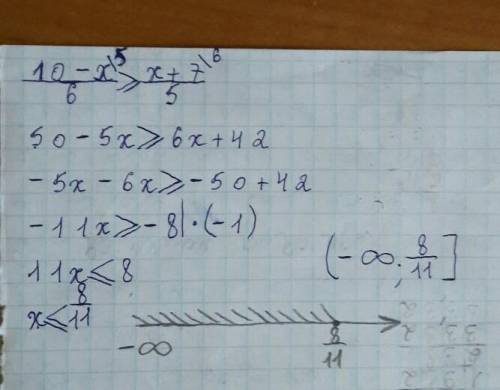 10 - x\5 ⩾ x + 7\6
6 5
50 - 5x ⩾ 6x + 42
-5x - 6x ⩾ -50 + 42
-11x ⩾ -8 | · (-1)
11x ⩽ 8
(-∞; 8/11]
x ⩽ 8/11
-∞ 8/11